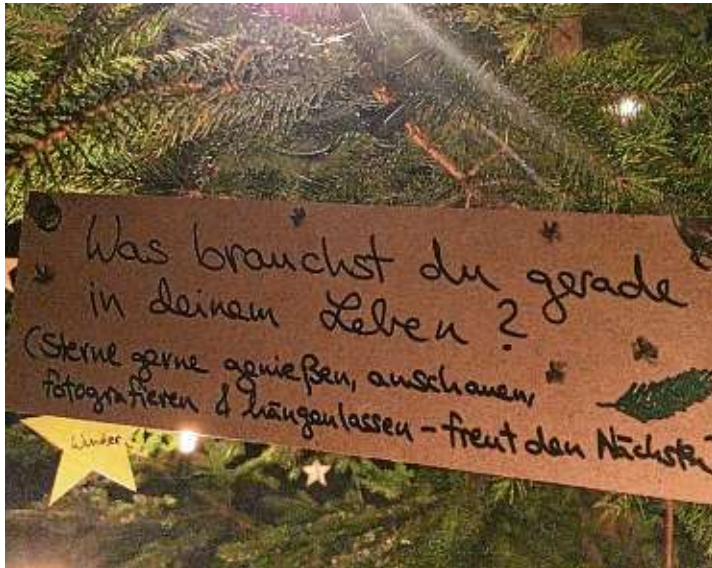 Was brauchst du gerade
in deinem Leben?
(Sterne gerne genießen, anschauen,
fotografieren & hängenlassen - freut den Nächsten